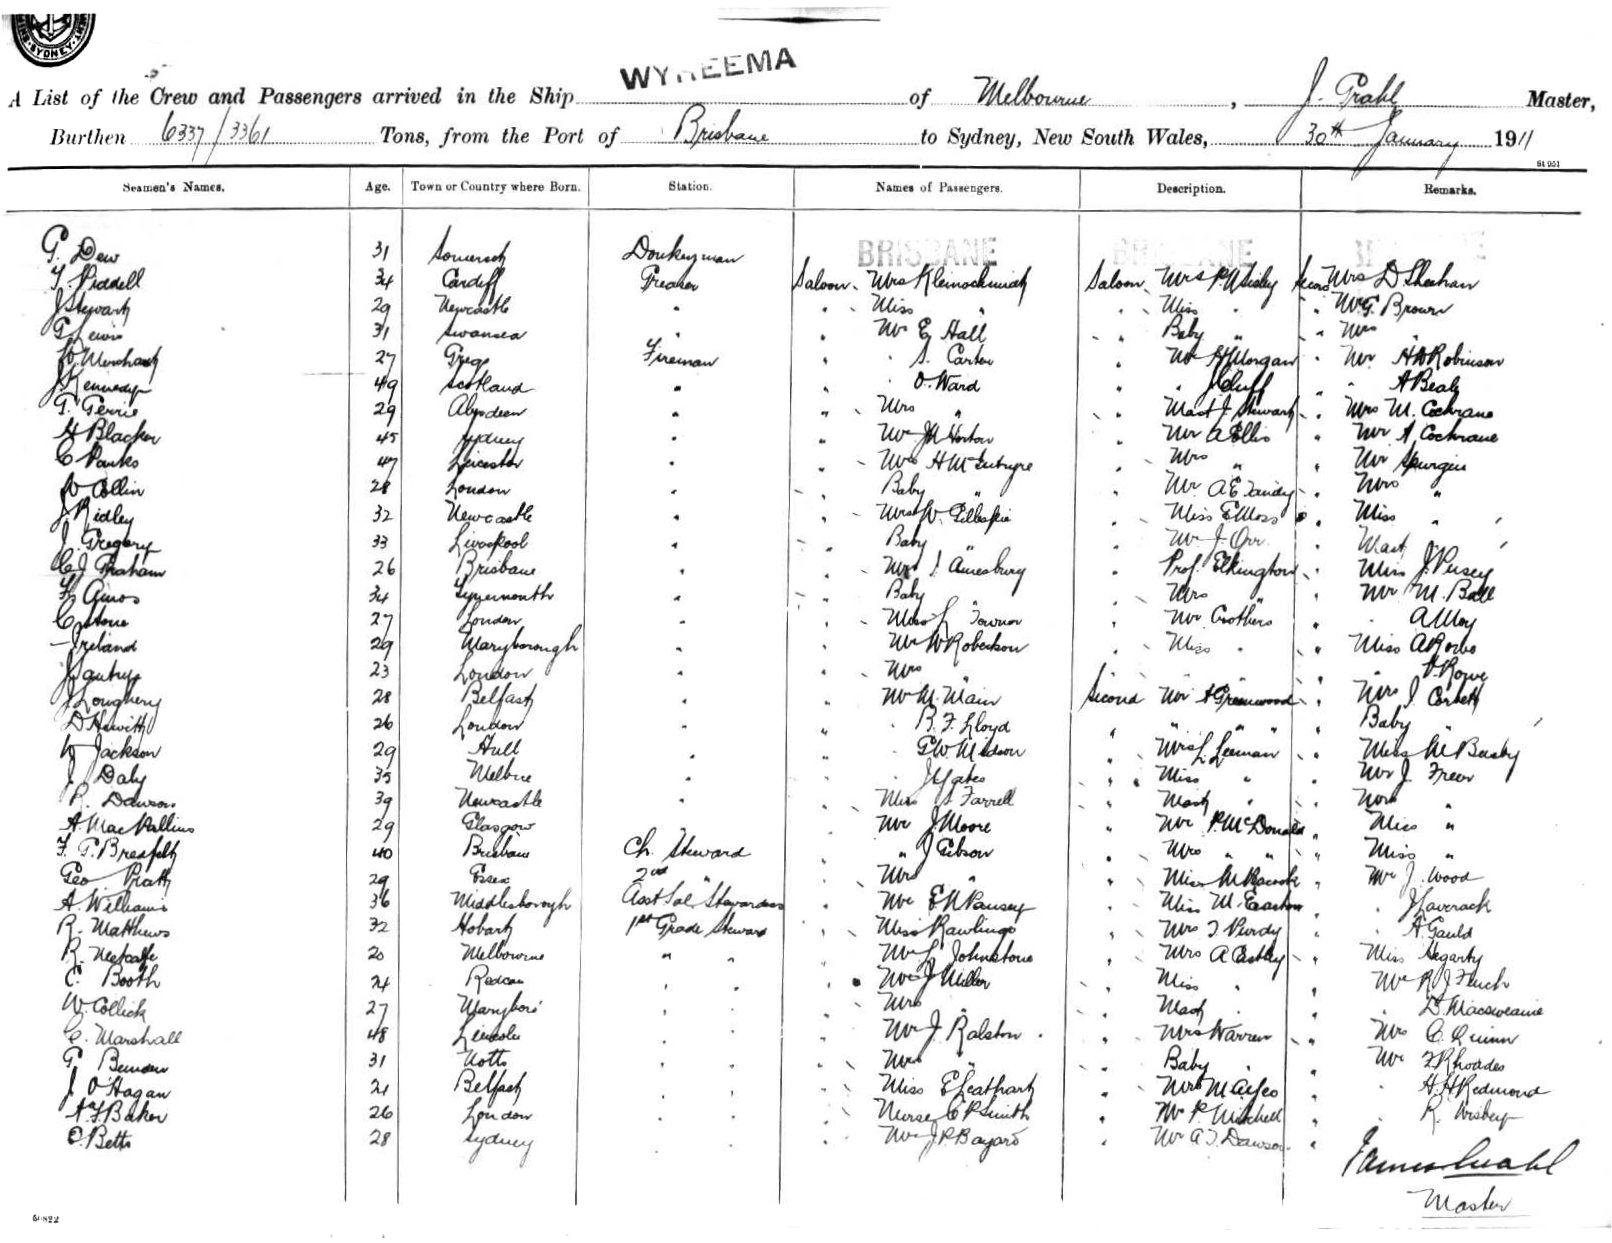 SYDNEY
WYREEMA
A List of the Crew and Passengers arrived in the Ship of Melbourne, J. Grahl Master,
Burthen 6337/3361 Tons, from the Port of Brisbane to Sydney, New South Wales, 30th January 1911
Seamen's Names. Age. Town or Country where Born. Station. Names of Passengers. Description. Remarks.
BRISBANE BRISBANE
G. Dew 31 Somerset Donkeyman
34 Cardiff Greaser Saloon Mrs Kleinschmidt Saloon Mrs P. Mrs D Sheahan
J Stewart 29 Newcastle " Miss " Miss " Mr G. Brown
G Lewis 31 Swansea " Mr E Hall Baby " Mrs "
W Merchant 27 Fireman S. Carter Mr H Morgan Mr H W Robinson
J Kennedy 49 Scotland " O. Ward A Bealy
G. Gerrie 29 Aberdeen " Mrs " Mast J. Stewart Mrs M. Cochrane
H Blacker 45 Sydney Mr J Horton Mr A Ellis Mr A Cochrane
C Panks 47 Leicester Mrs H McIntyre Mrs " Mr Spurgin
W Collin 28 London Baby " Mr A E Tandy Mrs "
J Ridley 32 Newcastle Mrs W. Gillespie Miss E Moss Miss "
J. Gregory 33 Liverpool Baby " Mr J. Orr Mast "
C J Graham 26 Brisbane Amesbury Prof. Elkington Miss J. Pusey
Amos 34 Baby " Mrs " Mr M. Ball
C Stone 27 London Mr Crothers A May
Ireland 29 Maryborough Mr W Robertson Miss " Miss A Rowe
23 London Mrs " V. Rowe
J Loughery 28 Belfast Mr M. Main Second Mr A Greenwood Mrs J. Corbett
D Hewitt 26 London R. F. Lloyd " " Baby "
W Jackson 29 Hull Mrs L Leeman Miss M Busby
J Daly 35 Melbne J Yates Miss " Mr J. Frew
R. Dawson 39 Newcastle Miss S Farrell Mast " Mrs "
A. MacCallum 29 Glasgow Mr J Moore Mr P. McDonald Miss "
40 Brisbane Ch. Steward " J Gibson Mrs " " Miss "
Geo Pratt 29 Essex 2nd " Mrs " Mr J. Wood
A. Williams 36 Middlesborough Asst Sal. Stewardess Mr E N Pausey Miss M. Easton
R. Matthews 32 Hobart 1st Grade Steward Miss Rawlings Mrs T Purdy A Gauld
R. Metcalfe 20 Melbourne " " Mr L Johnstone Mrs A Astley Miss Hegarty
C. Booth 24 Redcar Mr J Miller Miss " Mr R J French
W. Collick 27 Maryboro' Mrs " Mast " D Macsweaine
C. Marshall 48 Lincoln Mr J. Ralston Mrs Warren Mrs C. Quinn
31 Notts Mrs " Baby " Mr F Rhoades
J. O'Hagan 21 Belfast Miss E Leathart H. H Redmond
A. F. Baker 26 London Nurse C P Smith Mr P. Mitchell
C. Betts 28 Sydney Mr J. P. Bayard Mr A. J. Dawson
James Grahl
Master